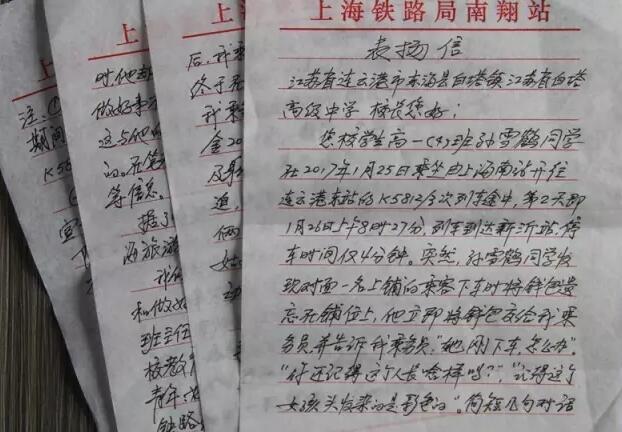 上海铁路局南翔站
表扬信
江苏省连云港市东海县白塔镇江苏省白塔
高级中学 校长您好:
您校学生高一(4)班孙雪鹤同学
在2017年1月25日乘坐由上海南站开往
连云港东站的K5812/3次列车途中,第2天即
1月26日上午8时27分,列车到达新沂站,停
车时间仅4分钟。突然,孙雪鹤同学发
现对面一名上铺的乘客下车时将钱包遗
忘在铺位上,他立即将钱包交给我乘
务员,并告诉我乘务员,"她刚下车,怎么办"。
"你还记得这个人长啥样吗?","记得这个
女孩头发染的是彩色的"。简短几句对话
后,我乘
终于在
我乘
金20
及身
道,
俩
女
动
上海
时他
做好事
这与他
的。在
等信息。
据了
海旅游
我
和做好
班主任
校教
青年,
铁路
上
注:①
期间
K58
宣